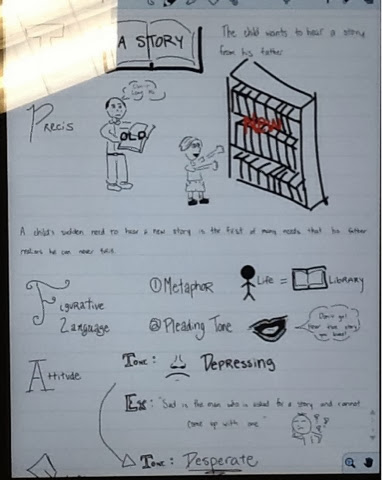 T
A STORY
The child wants to hear a story
from his father
Precis
OLD
NEW
A child's sudden need to hear a new story is the first of many needs that his father
realizes he can never fulfill.
Figurative
Language
① Metaphor
Life = Library
② Pleading Tone
Don't go!
Hear this story
Attitude
Tone: Depressing
Ex: "Sad is the man who is asked for a story and cannot
come up with one"
Tone: Desperate